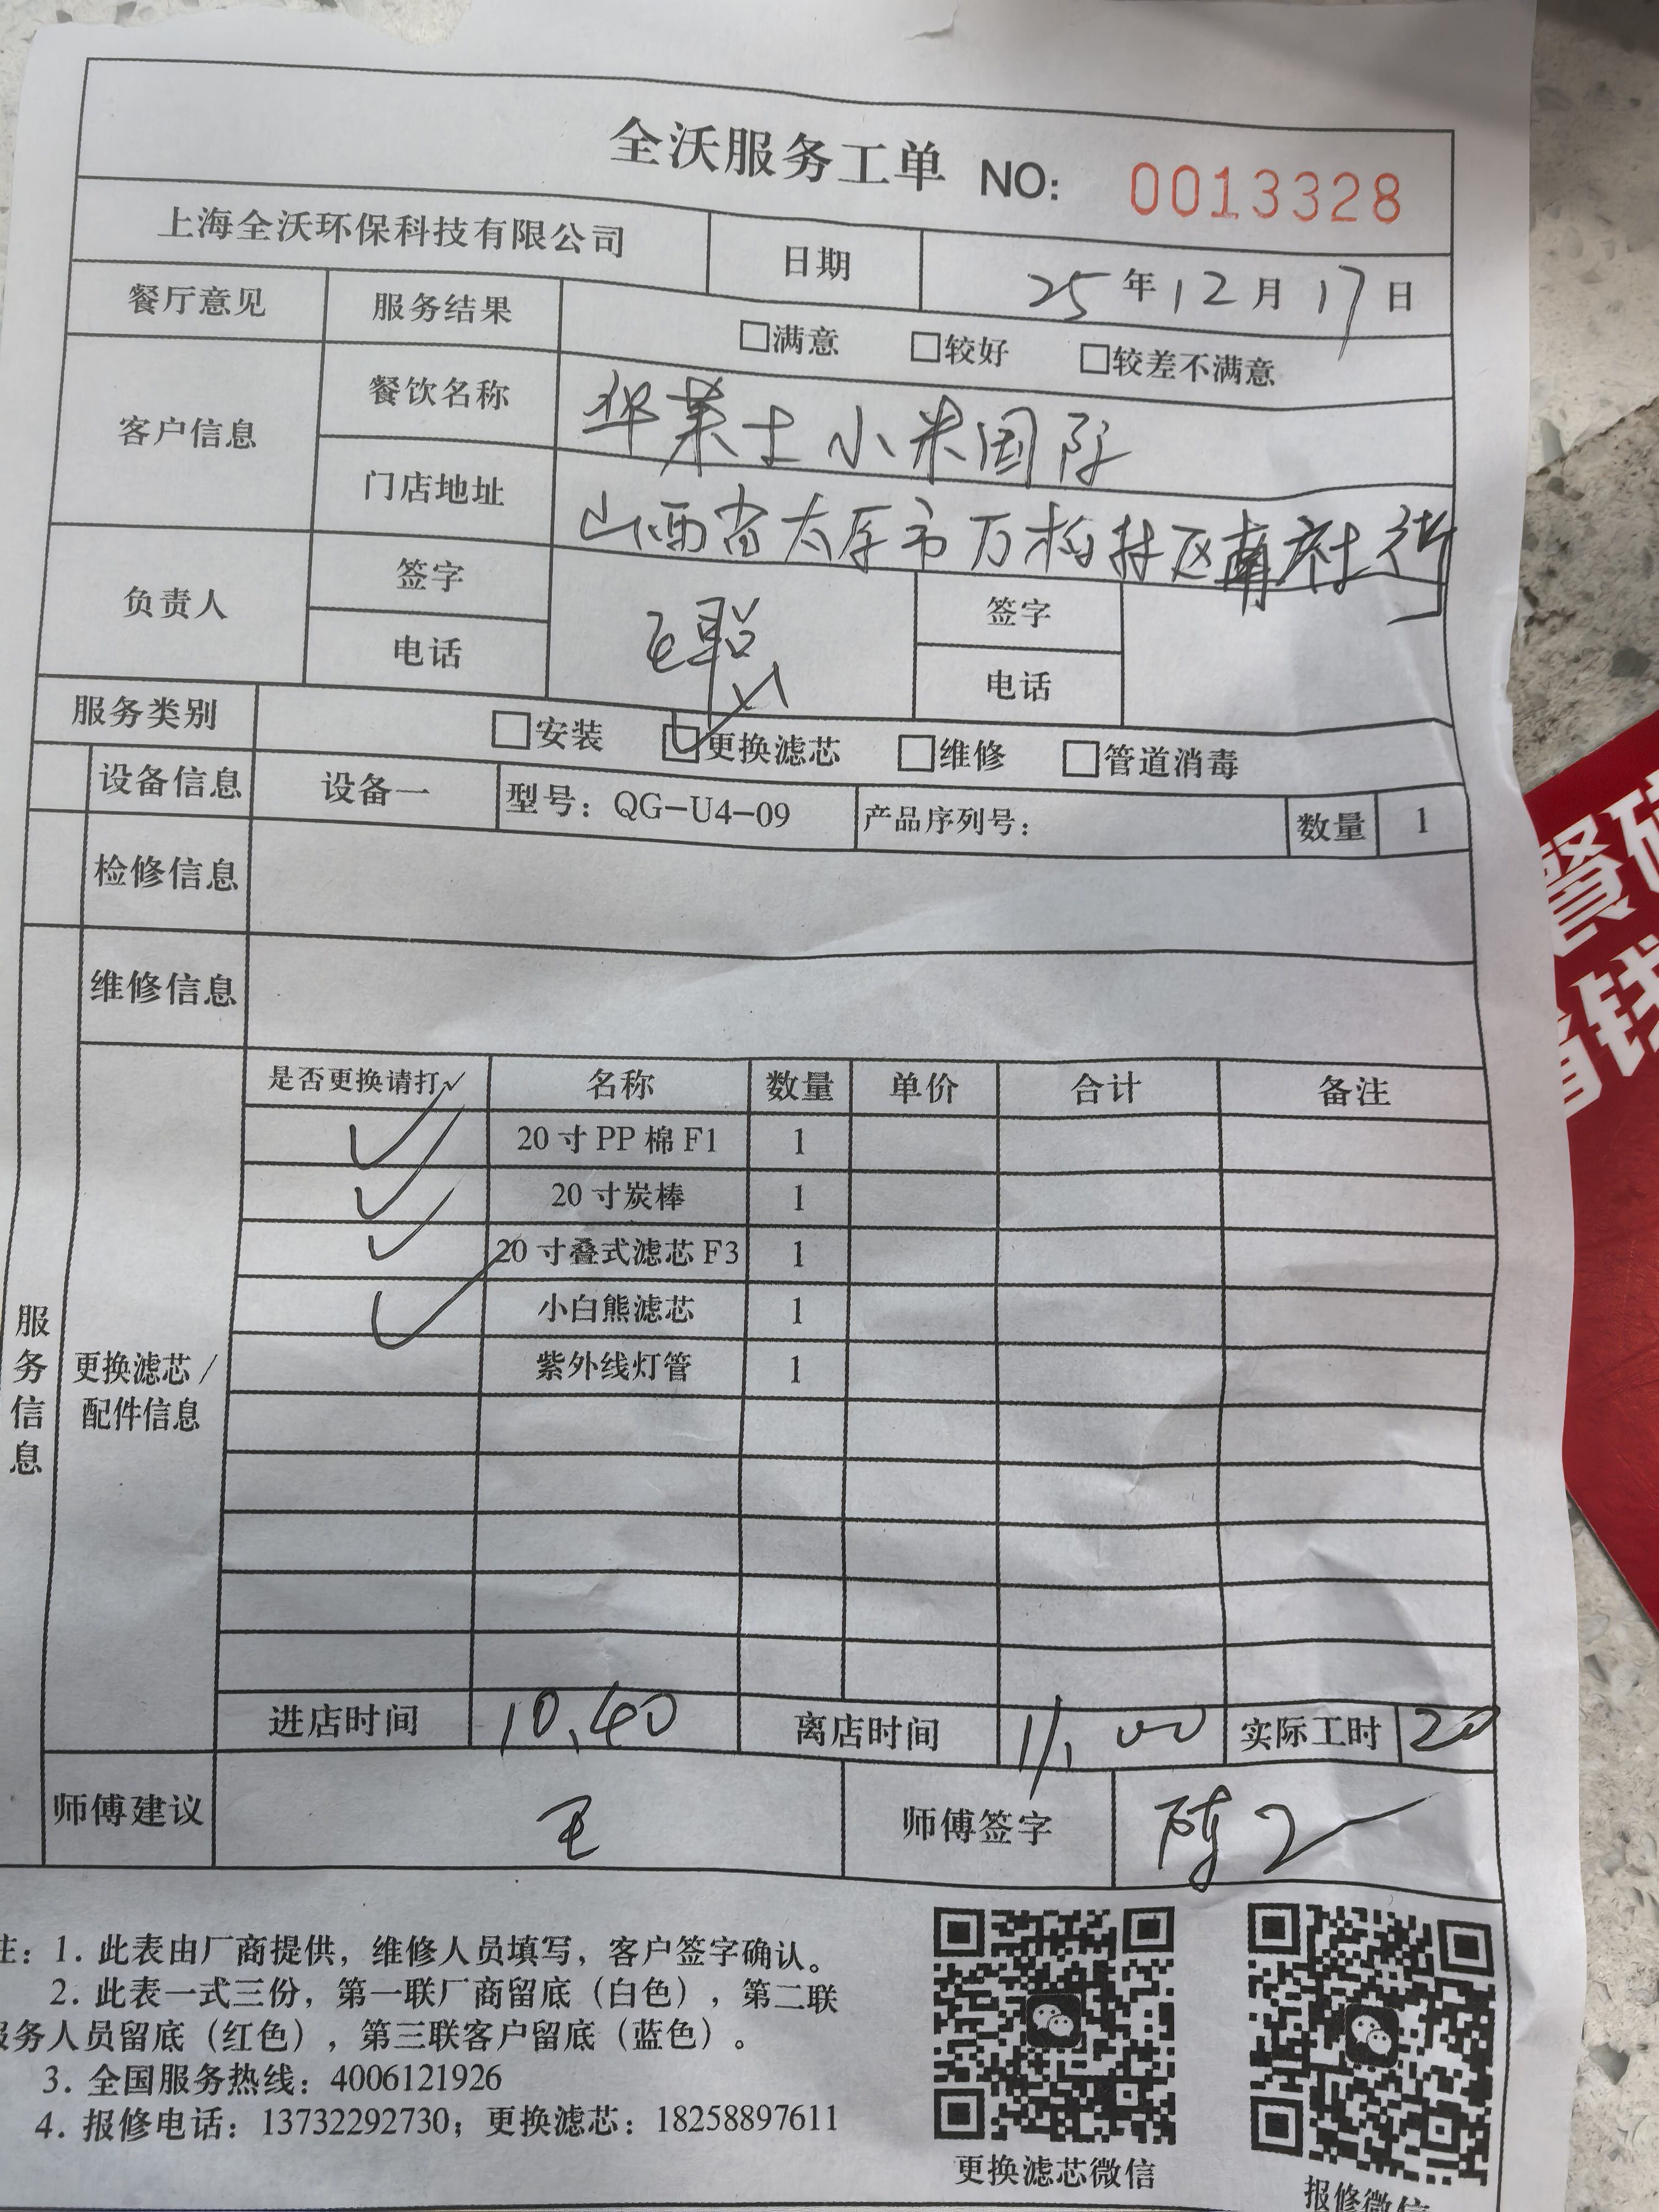 全沃服务工单 NO: 0013328
上海全沃环保科技有限公司 日期 25年12月17日
餐厅意见 服务结果 □满意 □较好 □较差不满意
客户信息 餐饮名称 华莱士小米团队
门店地址 山西省太原市万柏林区南社街
负责人 签字 签字
电话 电话
服务类别 □安装 ☑更换滤芯 □维修 □管道消毒
设备信息 设备一 型号：QG-U4-09 产品序列号： 数量 1
检修信息
维修信息
服务信息
更换滤芯/
配件信息
是否更换请打✓ 名称 数量 单价 合计 备注
✓ 20寸PP棉F1 1
✓ 20寸炭棒 1
✓ 20寸叠式滤芯F3 1
✓ 小白熊滤芯 1
紫外线灯管 1
进店时间 10.40 离店时间 11.00 实际工时 20
师傅建议 师傅签字
注：1. 此表由厂商提供，维修人员填写，客户签字确认。
2. 此表一式三份，第一联厂商留底（白色），第二联
服务人员留底（红色），第三联客户留底（蓝色）。
3. 全国服务热线：4006121926
4. 报修电话：13732292730；更换滤芯：18258897611
更换滤芯微信
报修微信
餐
省钱